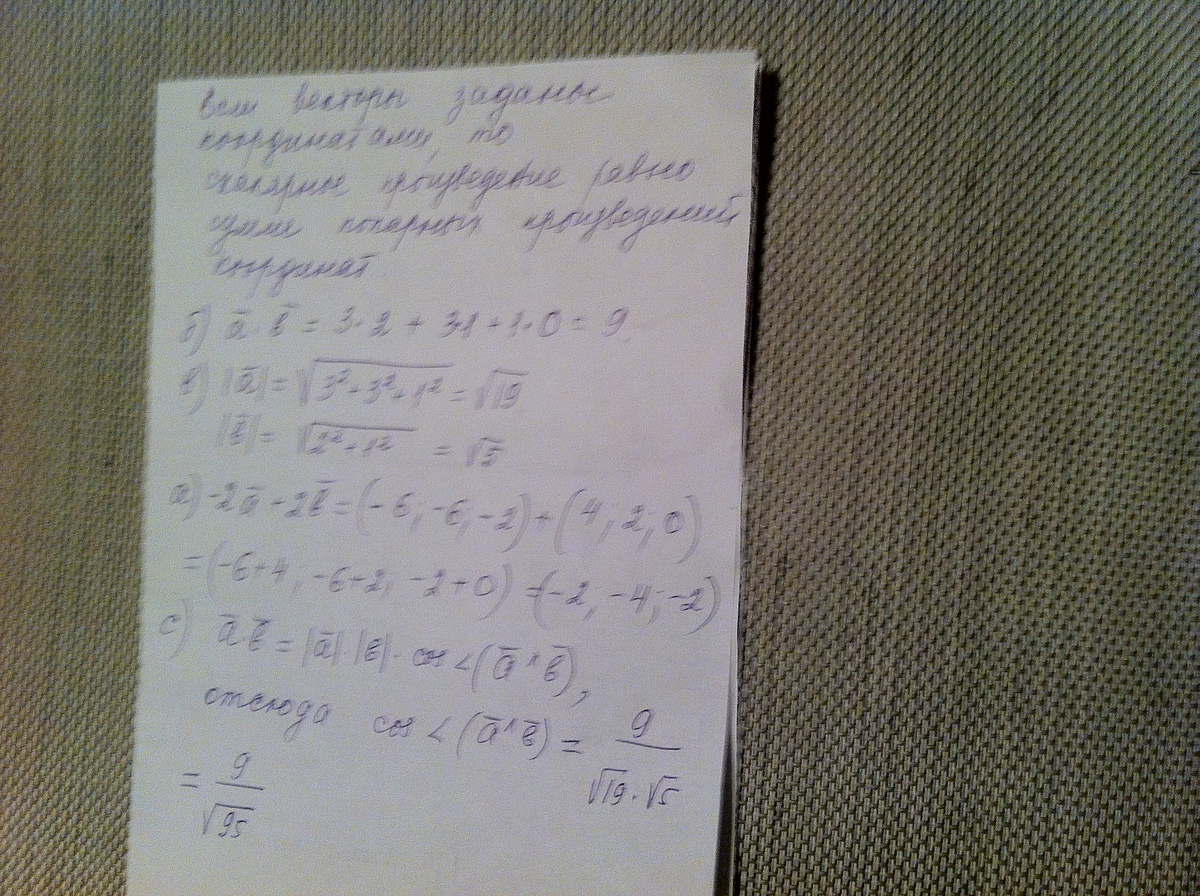 Если векторы заданы
координатами, то
скалярное произведение равно
сумме попарных произведений
координат
б) a̅ · b̅ = 3·2 + 3·1 + 1·0 = 9
в) |a̅| = √(3²+3²+1²) = √19
|b̅| = √(2²+1²) = √5
а) -2a̅ + 2b̅ = (-6; -6; -2) + (4; 2; 0)
= (-6+4; -6+2; -2+0) = (-2; -4; -2)
с) a̅·b̅ = |a̅|·|b̅|·cos<(a̅^b̅),
отсюда cos<(a̅^b̅) = 9/(√19·√5)
= 9/√95